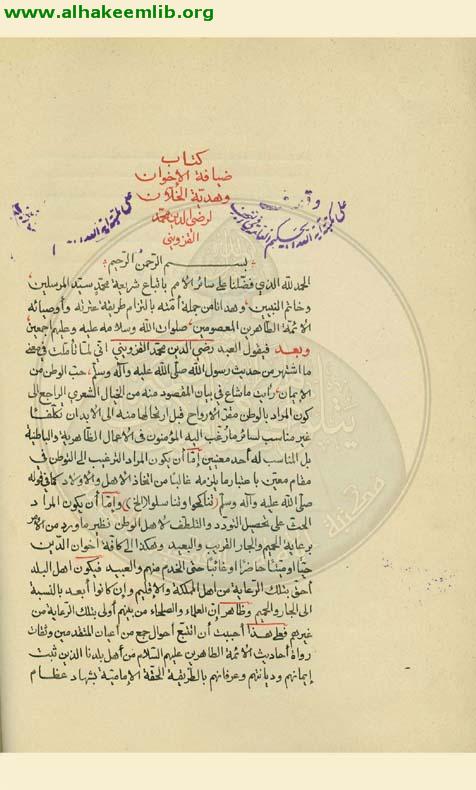 www.alhakeemlib.org
كتاب
ضيافة الإخوان
وهدية الخلان
لرضي الدين محمد
القزويني
بسم الرحمن الرحيم
الحمد لله الذي فضلنا على سائر الامم باتباع شريعة محمد سيد المرسلين
وخاتم النبيين وهدانا من جملة أمته بالتزام طريقة عترته وأوصيائه
الائمة الطاهرين المعصومين صلوات الله وسلامه عليه وعليهم أجمعين
وبعد فيقول العبد رضي الدين محمد القزويني اني لما تأملت في
ما اشتهر من حديث رسول الله صلى الله عليه وآله وسلم حب الوطن من
الايمان رأيت ما شاع في بيان المقصود منه من الخيال الشعري الراجع الى
كون المراد بالوطن مقر الارواح قبل ارتحالها منه الى الابدان تكلفا
غير مناسب لسائر ما رغب اليه المؤمنون في الاعمال الظاهرية والباطنة
بل المناسب له أحد معنيين إما أن يكون المراد الترغيب الى التوطن في
مقام معين باعتبار ما يلزمه غالبا من اتخاذ الاهل والاولاد كما في قوله
صلى الله عليه وآله وسلم (تناكحوا وتناسلوا الخ) وإما أن يكون المراد
الحث على تحصيل التودد والتلطف لاهل الوطن نظير ما ورد من الامر
برعاية الحميم والجار القريب والبعيد وهكذا الى كافة أخوان الدين
حيا وميتا حاضرا وغائبا حتى الخدم منهم والعبيد فيكون اهل البلد
أحق بتلك الرعاية من اهل المملكة والاقليم وإن كانوا أبعد بالنسبة
الى الجار والحميم وظاهر أن العلماء والصلحاء من بينهم أولى بتلك الرعاية من
غيرهم فلهذا أحببت أن اتتبع أحوال جمع من أعيان المتقدمين وثقات
رواة أحاديث الائمة الطاهرين عليهم السلام من أهل بلدنا الذين ثبت
إيمانهم وديانتهم وعرفانهم بالطريقة الحقة الامامية بشهاد عظام